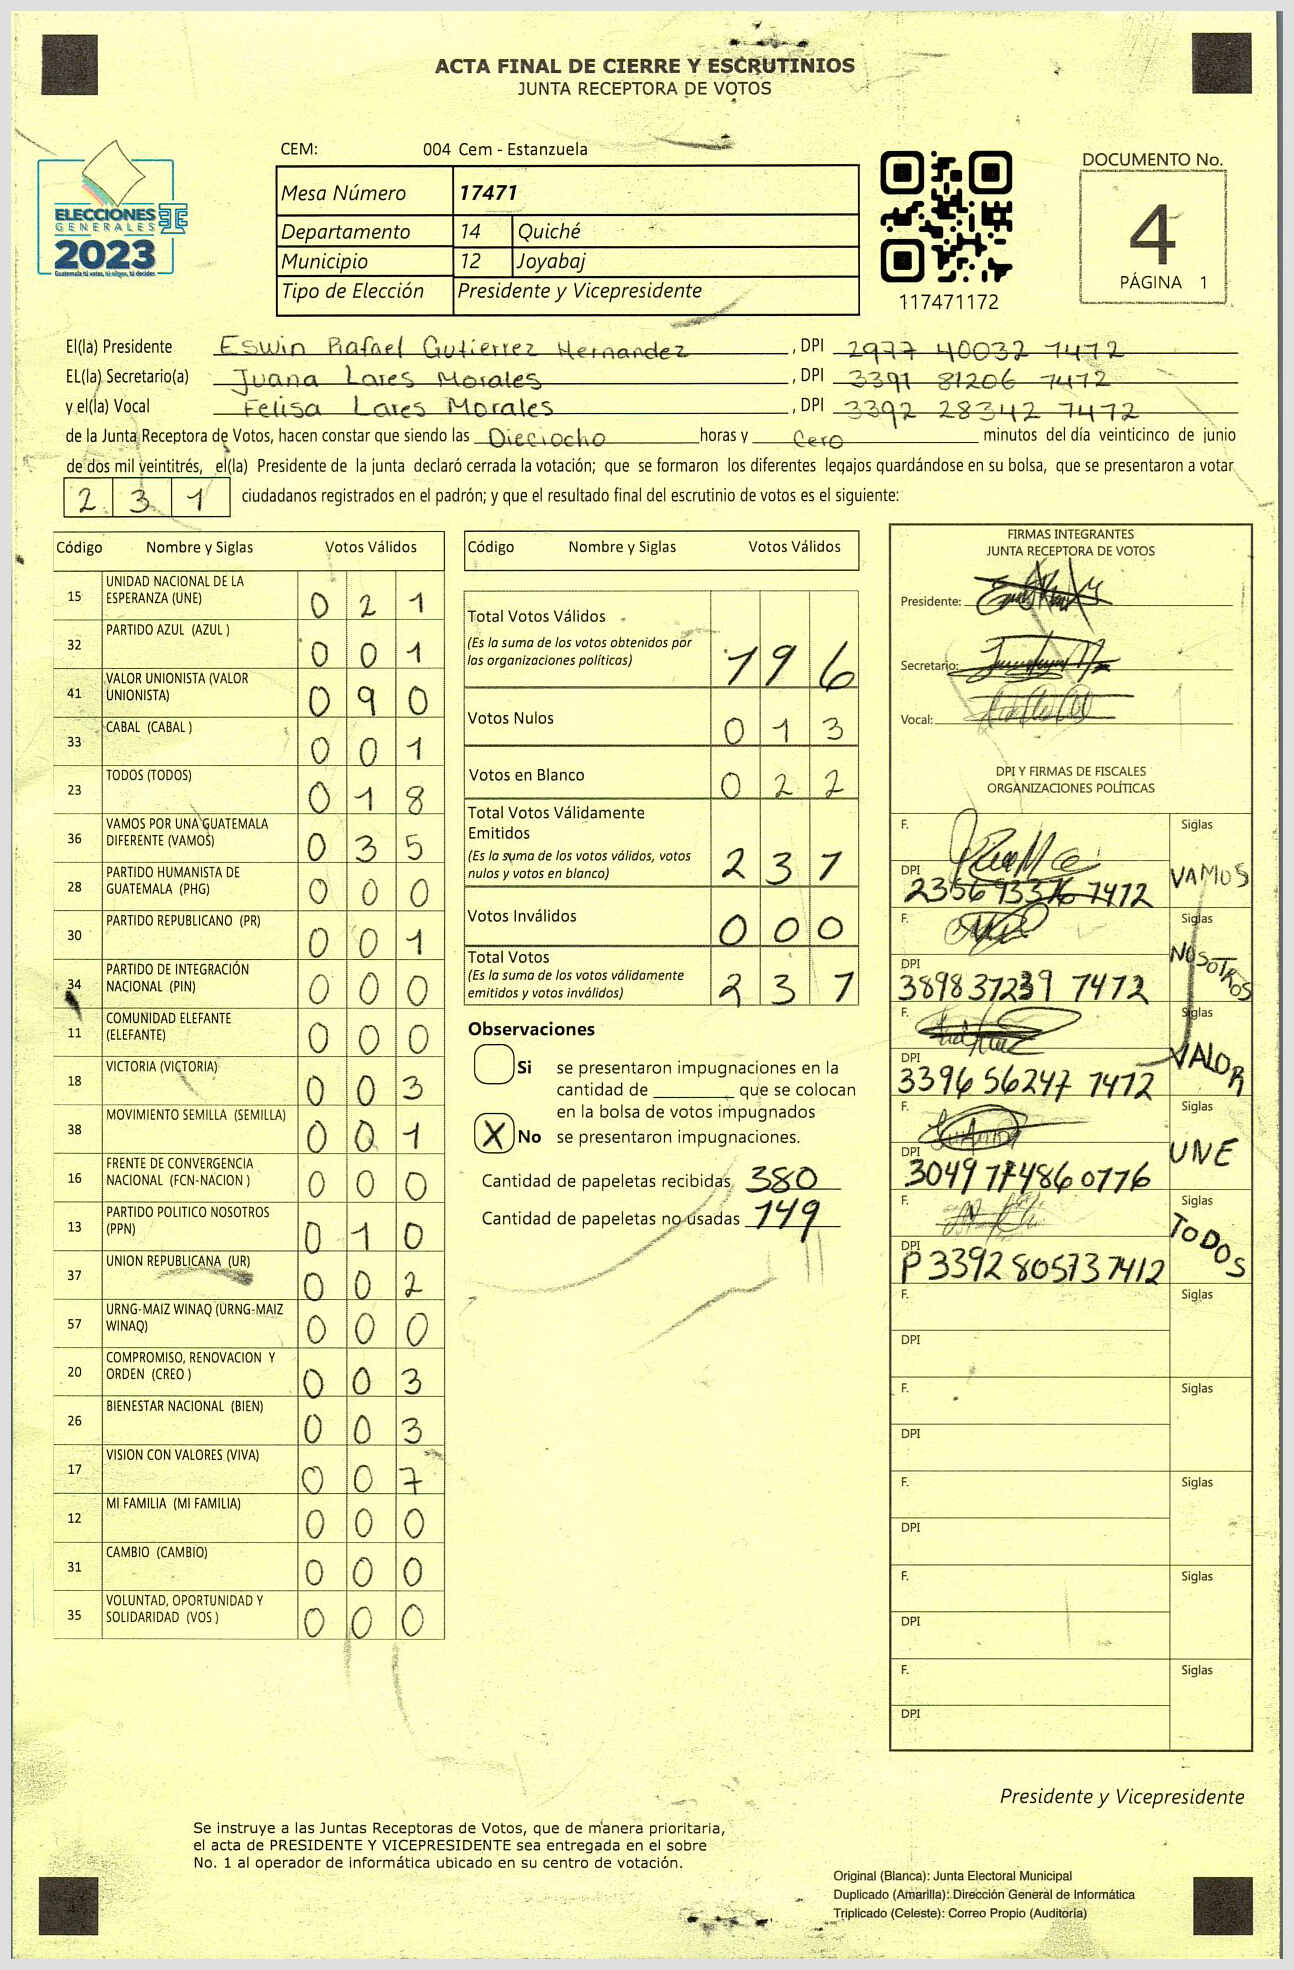 ACTA FINAL DE CIERRE Y ESCRUTINIOS
JUNTA RECEPTORA DE VOTOS
ELECCIONES
GENERALES
2023
CEM: 004 Cem - Estanzuela
Mesa Número 17471
Departamento 14 Quiché
Municipio 12 Joyabaj
Tipo de Elección Presidente y Vicepresidente
117471172
DOCUMENTO No.
4
PÁGINA 1
El(la) Presidente Eswin Rafael Gutierrez Hernandez , DPI 2977 40032 7472
EL(la) Secretario(a) Juana Lares Morales , DPI 3391 81206 7472
y el(la) Vocal Felisa Lares Morales , DPI 3392 28342 7472
de la Junta Receptora de Votos, hacen constar que siendo las Dieciocho horas y Cero minutos del día veinticinco de junio
de dos mil veintitrés, el(la) Presidente de la junta declaró cerrada la votación; que se formaron los diferentes legajos quardándose en su bolsa, que se presentaron a votar
2 3 1 ciudadanos registrados en el padrón; y que el resultado final del escrutinio de votos es el siguiente:
Código Nombre y Siglas Votos Válidos
15 UNIDAD NACIONAL DE LA ESPERANZA (UNE) 0 2 1
32 PARTIDO AZUL (AZUL ) 0 0 1
41 VALOR UNIONISTA (VALOR UNIONISTA) 0 9 0
33 CABAL (CABAL ) 0 0 1
23 TODOS (TODOS) 0 1 8
36 VAMOS POR UNA GUATEMALA DIFERENTE (VAMOS) 0 3 5
28 PARTIDO HUMANISTA DE GUATEMALA (PHG) 0 0 0
30 PARTIDO REPUBLICANO (PR) 0 0 1
34 PARTIDO DE INTEGRACIÓN NACIONAL (PIN) 0 0 0
11 COMUNIDAD ELEFANTE (ELEFANTE) 0 0 0
18 VICTORIA (VICTORIA) 0 0 3
38 MOVIMIENTO SEMILLA (SEMILLA) 0 0 1
16 FRENTE DE CONVERGENCIA NACIONAL (FCN-NACION ) 0 0 0
13 PARTIDO POLITICO NOSOTROS (PPN) 0 1 0
37 UNION REPUBLICANA (UR) 0 0 2
57 URNG-MAIZ WINAQ (URNG-MAIZ WINAQ) 0 0 0
20 COMPROMISO, RENOVACION Y ORDEN (CREO ) 0 0 3
26 BIENESTAR NACIONAL (BIEN) 0 0 3
17 VISION CON VALORES (VIVA) 0 0 7
12 MI FAMILIA (MI FAMILIA) 0 0 0
31 CAMBIO (CAMBIO) 0 0 0
35 VOLUNTAD, OPORTUNIDAD Y SOLIDARIDAD (VOS ) 0 0 0
Código Nombre y Siglas Votos Válidos
Total Votos Válidos
(Es la suma de los votos obtenidos por
las organizaciones políticas) 1 9 6
Votos Nulos 0 1 3
Votos en Blanco 0 2 2
Total Votos Válidamente
Emitidos
(Es la suma de los votos válidos, votos
nulos y votos en blanco) 2 3 1
Votos Inválidos 0 0 0
Total Votos
(Es la suma de los votos válidamente
emitidos y votos inválidos) 2 3 1
Observaciones
Si se presentaron impugnaciones en la
cantidad de ________ que se colocan
en la bolsa de votos impugnados
X No se presentaron impugnaciones.
Cantidad de papeletas recibidas 380
Cantidad de papeletas no usadas 149
FIRMAS INTEGRANTES
JUNTA RECEPTORA DE VOTOS
Presidente:
Secretario:
Vocal:
DPI Y FIRMAS DE FISCALES
ORGANIZACIONES POLÍTICAS
F. Siglas
DPI 2356 93376 7472 VAMOS
F. Siglas
DPI 3898 37239 7472 NOSOTROS
F. Siglas
DPI 3396 56247 7472 VALOR
F. Siglas
DPI 3049 77486 0776 UNE
F. Siglas
DPI P 3392 80573 7412 TODOS
F. Siglas
DPI
F. Siglas
DPI
F. Siglas
DPI
F. Siglas
DPI
F. Siglas
DPI
Presidente y Vicepresidente
Se instruye a las Juntas Receptoras de Votos, que de manera prioritaria,
el acta de PRESIDENTE Y VICEPRESIDENTE sea entregada en el sobre
No. 1 al operador de informática ubicado en su centro de votación.
Original (Blanca): Junta Electoral Municipal
Duplicado (Amarilla): Dirección General de Informática
Triplicado (Celeste): Correo Propio (Auditoría)